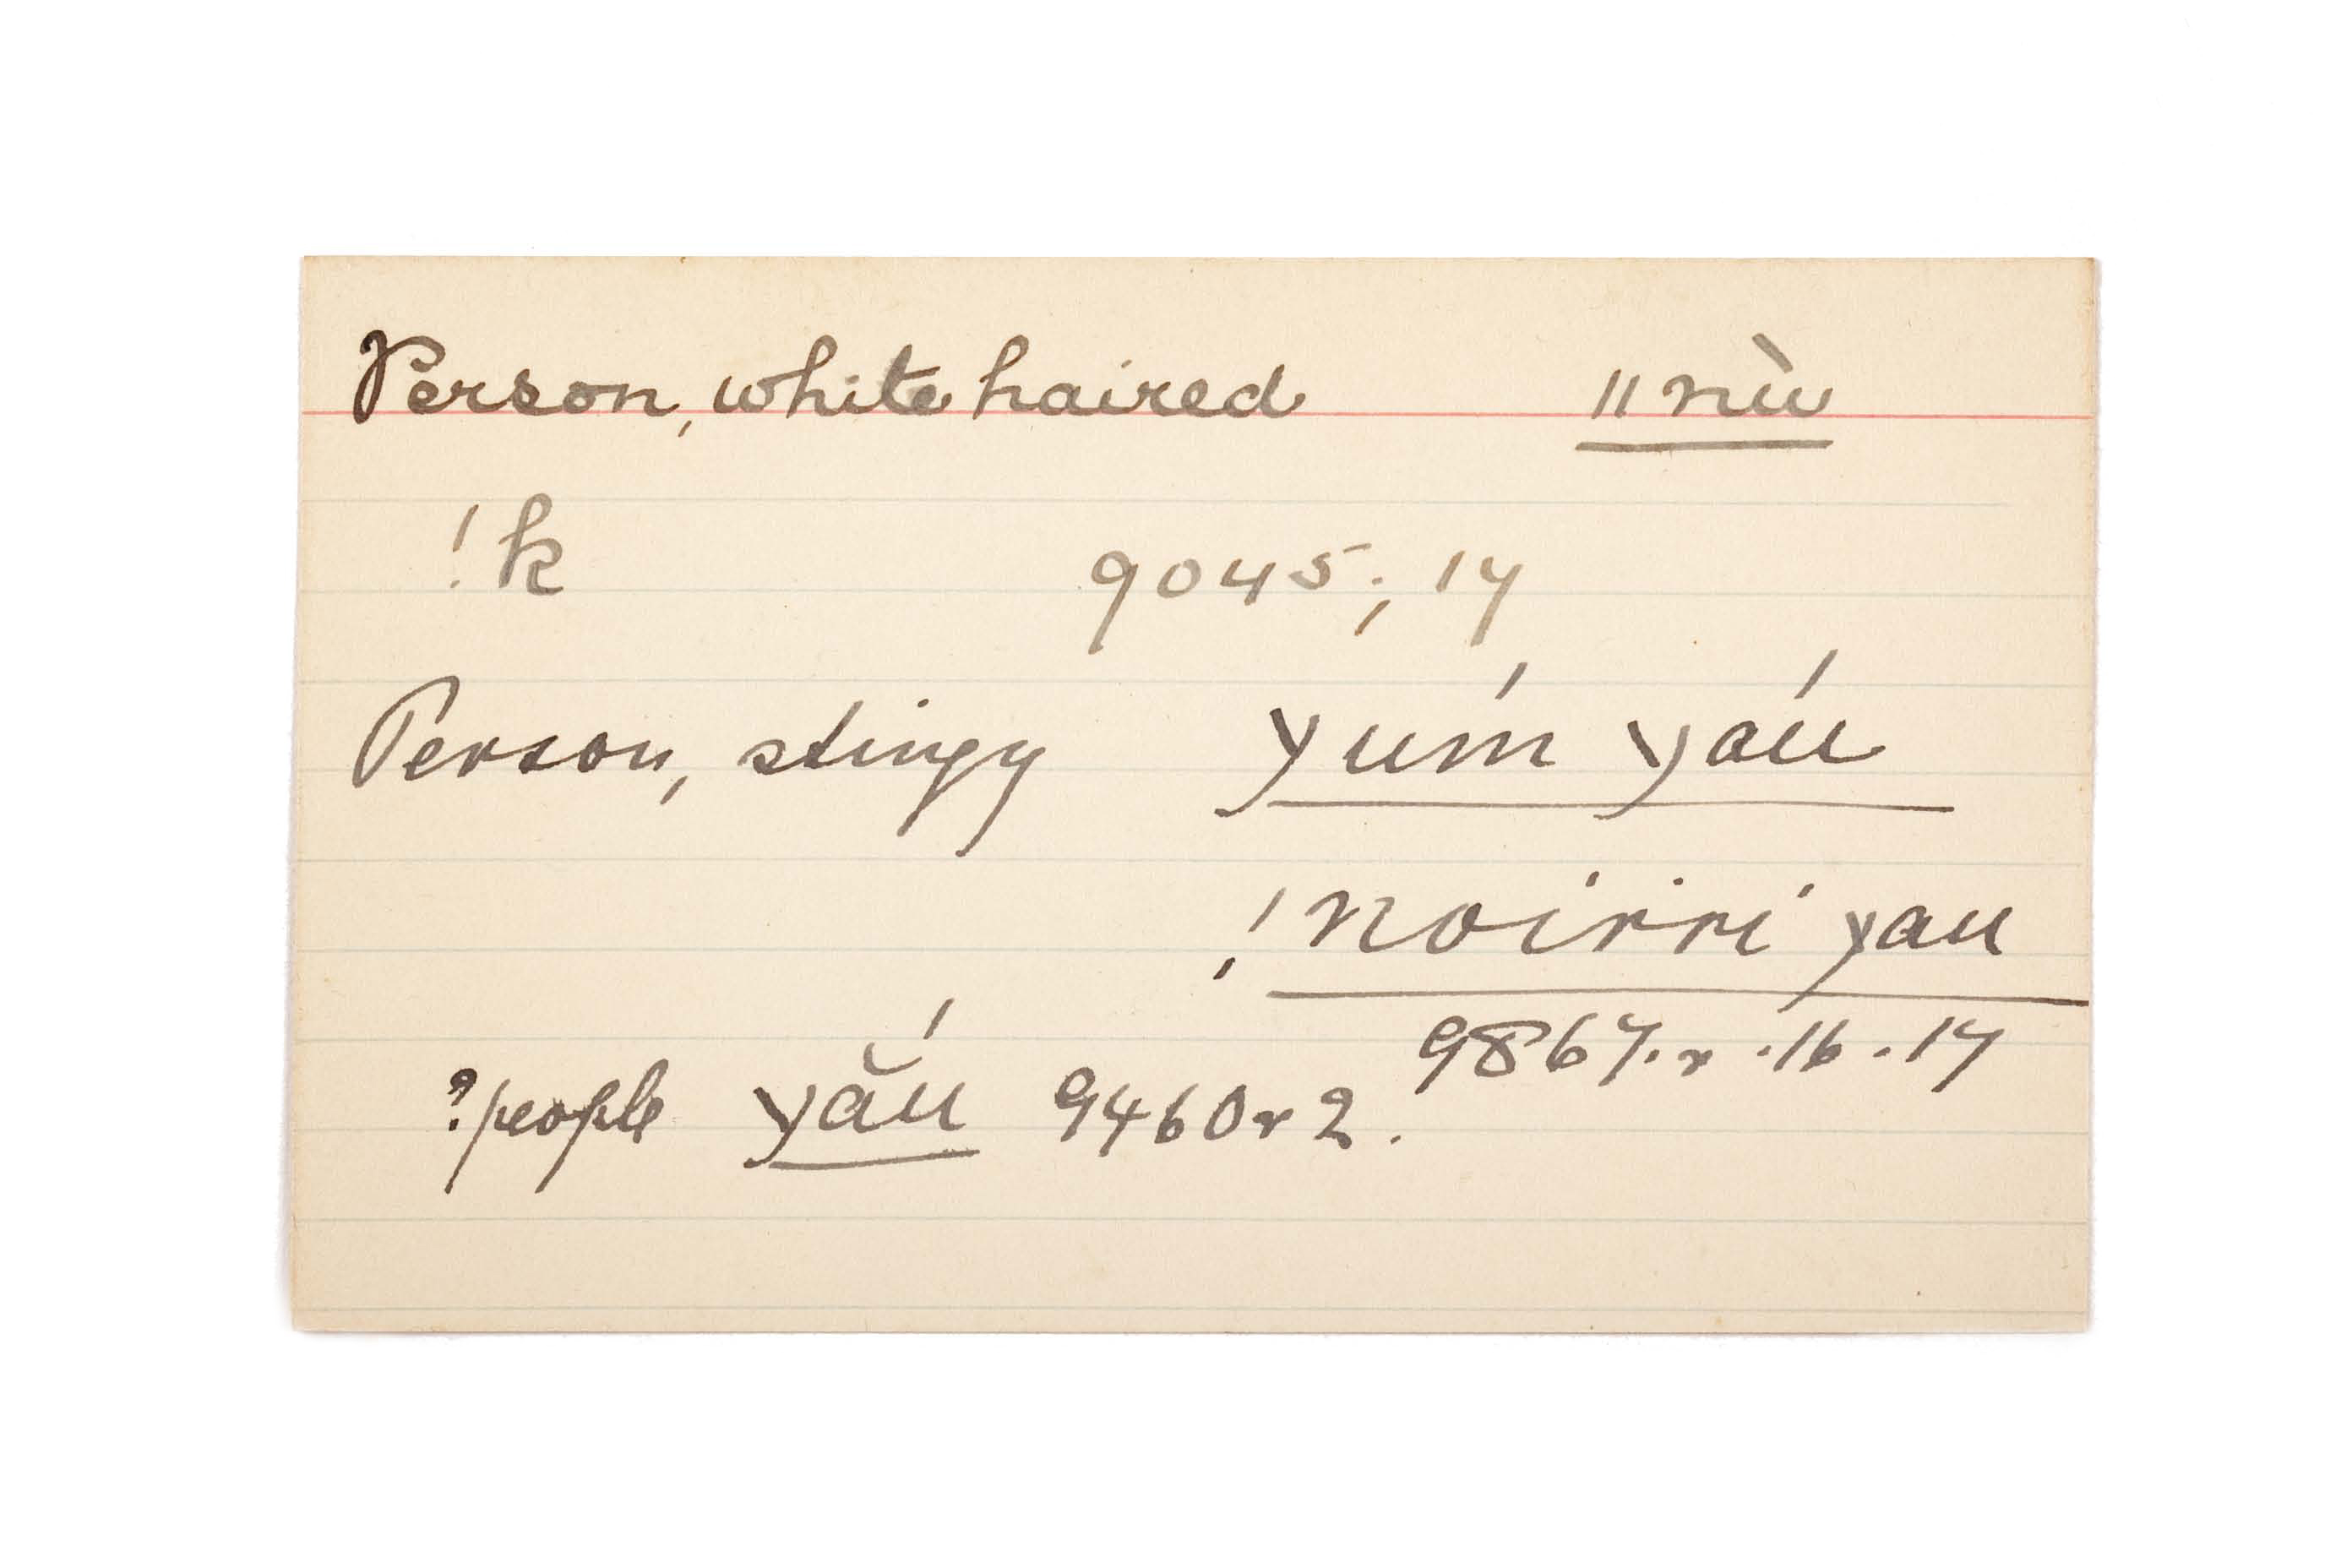 Person, white haired ǁnùu
!k 9045; 17
Person, stingy yum̀ yaú
!noirri yau
9867.r.16.17
?people yăú 9460r2.